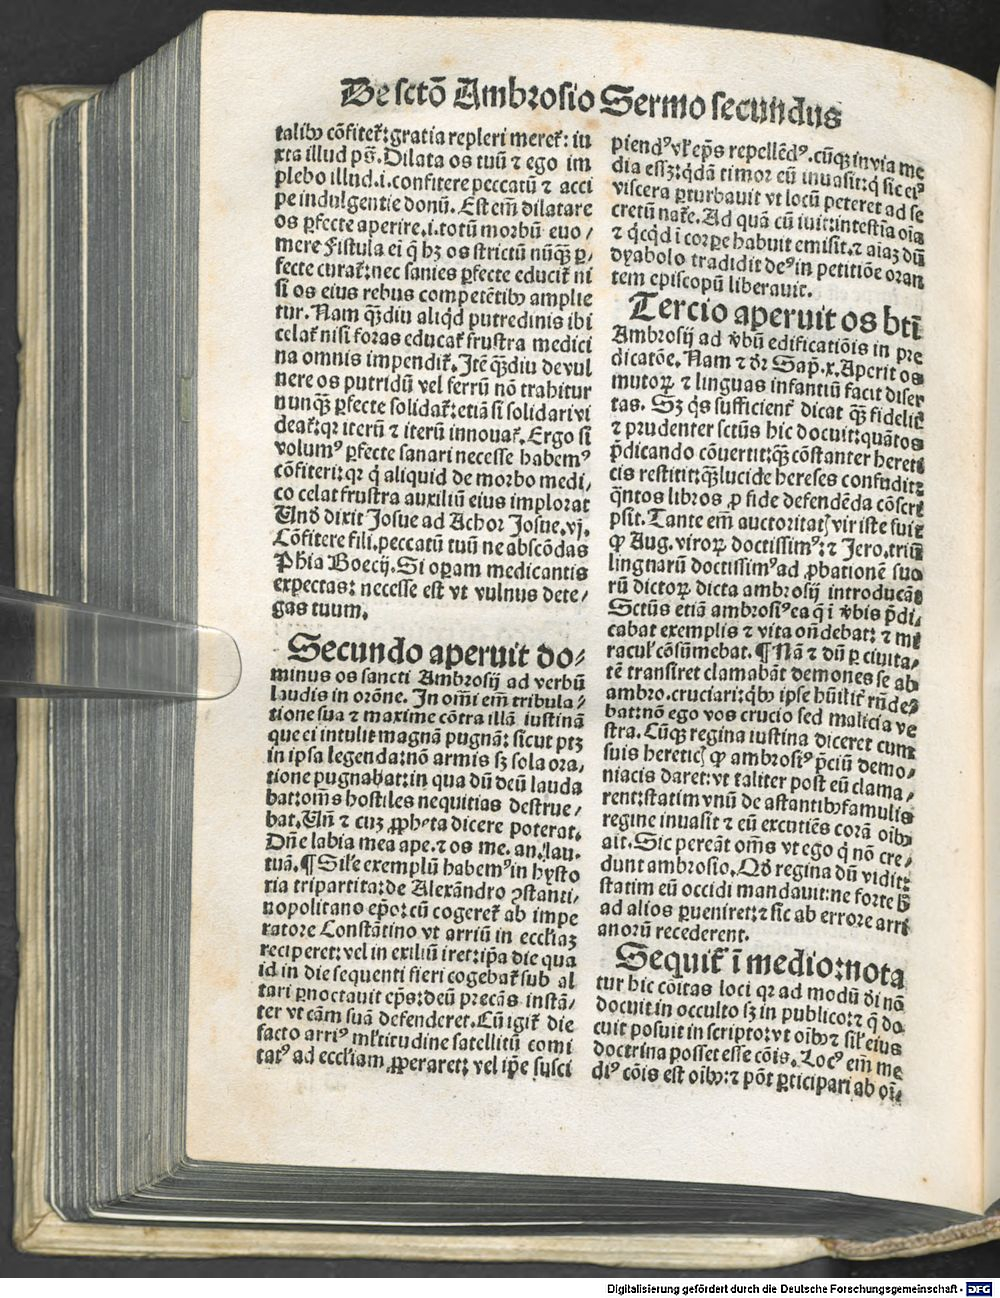 De sctō Ambrosio Sermo secundus
talibꝫ cōfitet᷑: gratia repleri meret᷑: iu
xta illud pꝰ. Dilata os tuū ⁊ ego im
plebo illud .i. confitere peccatū ⁊ acci
pe indulgentie donū. Est em̄ dilatare
os ꝑfecte aperire .i. totū morbū euo/
mere Fistula ei q̄ hꝫ os strictū nūqꝫ ꝑ/
fecte curat᷑: nec sanies ꝑfecte educit᷑ ni
si os eius rebus competētibꝫ amplie
tur. Nam qꝫdiu aliqd putredinis ibi
celat᷑ nisi foras educat᷑ frustra medici
na omnis impendit᷑. Itē qꝫdiu de vul
nere os putridū vel ferrū nō trahitur
nunqꝫ ꝑfecte solidat᷑: etiā si solidari vi
deat᷑: qꝛ iterū ⁊ iterū innouat᷑. Ergo si
volumꝰ ꝑfecte sanari necesse habemꝰ
cōfiteri: qꝛ q̄ aliquid de morbo medi/
co celat frustra auxiliū eius implorat
Vnd̄ dixit Josue ad Achor Josue .vj.
Cōfitere fili. peccatū tuū ne abscōdas
Phia Boecij. Si oꝑam medicantis
expectas: necesse est vt vulnus dete/
gas tuum.
Secundo aperuit do/
minus os sancti Ambrosij ad verbū
laudis in orōne. In om̄i em̄ tribula/
tione sua ⁊ maxime cōtra illā iustinā
que ei intulit magnā pugnā: sicut ptꝫ
in ipsa legenda: nō armis sꝫ sola ora/
tione pugnabat: in qua dū deū lauda
bat: om̄s hostiles nequitias destrue/
bat. Vn̄ ⁊ cuꝫ ꝓpheta dicere poterat.
Dn̄e labia mea ape. ⁊ os me. an. lau.
tuā. ¶ Sil̓e exemplū habemꝰ in hysto
ria tripartita: de Alexādro ꝯstanti/
nopolitano ep̄o: cū cogeret᷑ ab impe
ratore Constātino vt arriū in eccl̓iaꝫ
reciperet: vel in exiliū iret: ip̄a die qua
id in die sequenti fieri cogebat᷑ sub al
tari ꝑnoctauit ep̄s: deū precās instā/
ter vt cām suā defenderet. Cū igit᷑ die
facto arriꝰ ml̓titudine satellitū comi
tatꝰ ad eccl̓iam ꝓperaret: vel ip̄e susci
piendꝰ vl̓ ep̄s repellēdꝰ. cūqꝫ in via me
dia essꝫ: qdā timor eū inuasit: q̄ sic eiꝰ
viscera ꝑturbauit vt locū peteret ad se
cretū nat̓e. Ad quā cū iuit: intestīa oīa
⁊ qcqd ī corꝑe habuit emisit. ⁊ aiaꝫ dū
dyabolo tradidit deꝰ in petitiōe oran
tem episcopū liberauit.
Tercio aperuit os btī
Ambrosij ad v̓bū edificatiōis in pre
dicatōe. Nam ⁊ dr̄ Sap̄. x. Aperit os
mutoꝝ ⁊ linguas infantiū facit diser
tas. Sꝫ qs sufficient᷑ dicat qꝫ fidelit᷑
⁊ prudenter sctūs hic docuit: quātos
p̄dicando cōuertit: qꝫ cōstanter hereti
cis restitit: qꝫ lucide hereses confudit:
qntos libros ꝓ fide defendēda cōscri
psit. Tante em̄ auctoritatꝭ vir iste fuit
ꝙ Aug. viroꝝ doctissimꝰ: ⁊ Jero. triū
linguarū doctissimꝰ ad ꝓbationē suo
rū dictoꝝ dicta ambrosij introducāt
Sctūs etiā ambrosiꝰ ea q̄ ī v̓bis p̄di/
cabat exemplis ⁊ vita on̄debat: ⁊ mi
racul̓ cōsūmebat. ¶ Nā ⁊ dū ꝑ ciuita/
tē transiret clamabāt demones se ab
ambro. cruciari: qbꝫ ipse hūilit᷑ rn̄de/
bat: nō ego vos crucio sed malicia ve
stra. Cūqꝫ regina iustina diceret cum
suis hereticꝭ ꝙ ambrosiꝰ p̄ciū demo/
niacis daret: vt taliter post eū clama/
rent: statim vnū de astantibꝫ famulis
regine inuasit ⁊ eū excutiēs corā oībꝫ
ait. Sic pereāt om̄s vt ego q̄ nō cre/
dunt ambrosio. Qd̄ regina dū vidit:
statim eū occidi mandauit: ne forte
ad alios ꝑueniret: ⁊ sic ab errore arri
anorū recederent.
Sequit᷑ ī medio: nota
tur hic cōitas loci qꝛ ad modū dī nō
docuit in occulto sꝫ in publico: ⁊ q̄ do
cuit posuit in scripto: vt oībꝫ ⁊ sil̓ eius
doctrina posset esse cōis. Locꝰ em̄ me
diꝰ cōis est oībꝫ: ⁊ pōt ꝑticipari ab oī/
Digitalisierung gefördert durch die Deutsche Forschungsgemeinschaft - DFG